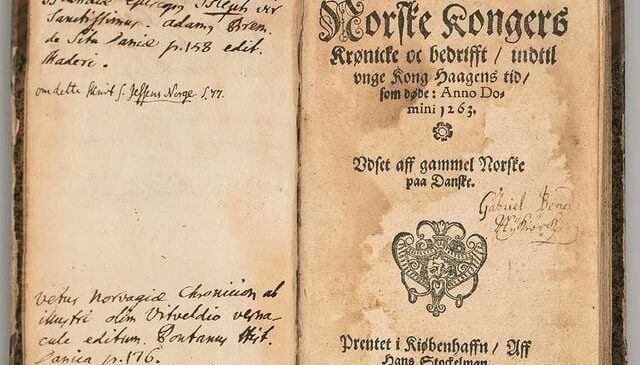 Islandiæ Episcopus Isleph vir
Sanctissimus. Adam, Brem.
de Situ Daniæ p. 158 edit.
Maderi.
om dette skrivt s. Jessens Norge S. 77.
vetus Norvagiæ Chronicion ab
illustri olim Vitveldio verna-
cule editum. Pontanus Hist.
Danica p. 176.
Norske Kongers
Krønicke oc bedrifft / indtil
vnge Kong Haagens tid /
som døde: Anno Do-
mini 1263.
Vdset aff gammel Norske
paa Danske.
Gabriel
Prentet i Kiøbenhaffn / Aff
Hans Stockelman.